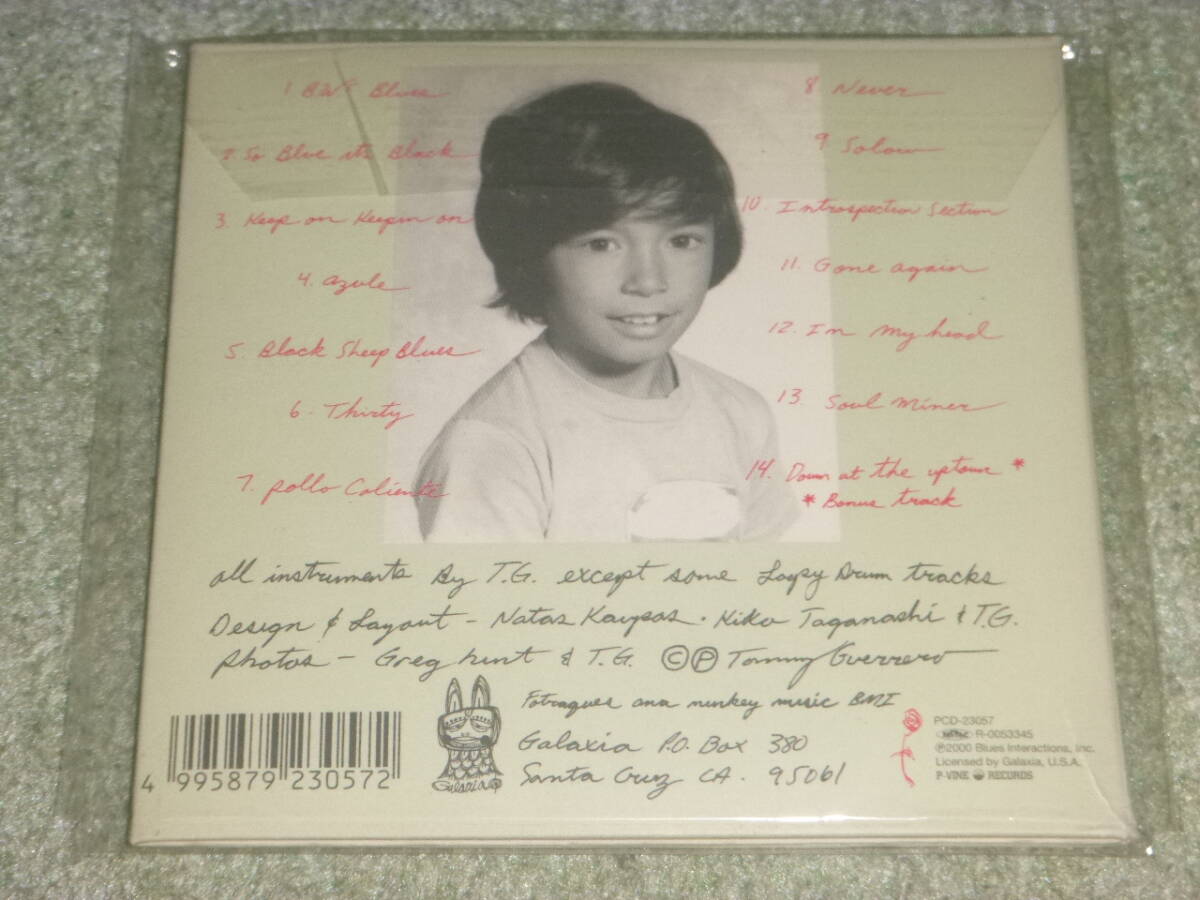 1 BW's Blues
2. So Blue its Black
3. Keep on Keepin on
4. azule
5. Black Sheep Blues
6. Thirty
7. pollo Caliente
8 Never
9 Solow
10. Introspection Section
11. Gone again
12. In my head
13. Soul Miner
14. Down at the uptown *
* Bonus track
all instruments By T.G. except some Loopy Drum tracks
Design & Layout - Natas Kaupas. Kiko Taganashi & T.G.
photos - Greg hunt & T.G. ©℗ Tommy Guerrero
music BMI
Galaxia P.O. Box 380
Santa Cruz CA. 95061
Galaxia
4 995879 230572
PCD-23057
R-0053345
℗2000 Blues Interactions, Inc.
Licensed by Galaxia, U.S.A.
P-VINE RECORDS